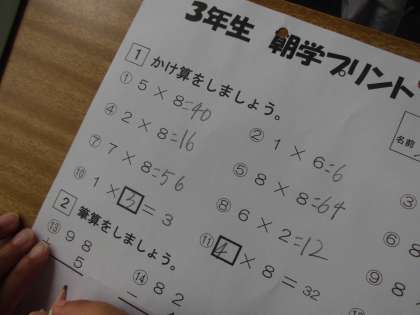 3年生 朝学プリント
1 かけ算をしましょう。
① 5 × 8=40
② 1 × 6=6
③
④ 2 × 8=16
⑤ 8 × 8=64
⑥ 8
⑦ 7 × 8=56
⑧ 6 × 2=12
⑨ 8
⑩ 1 × 3 = 3
⑪ 4 × 8 = 32
名前
2 筆算をしましょう。
⑬ 98
+ 5
⑭ 82